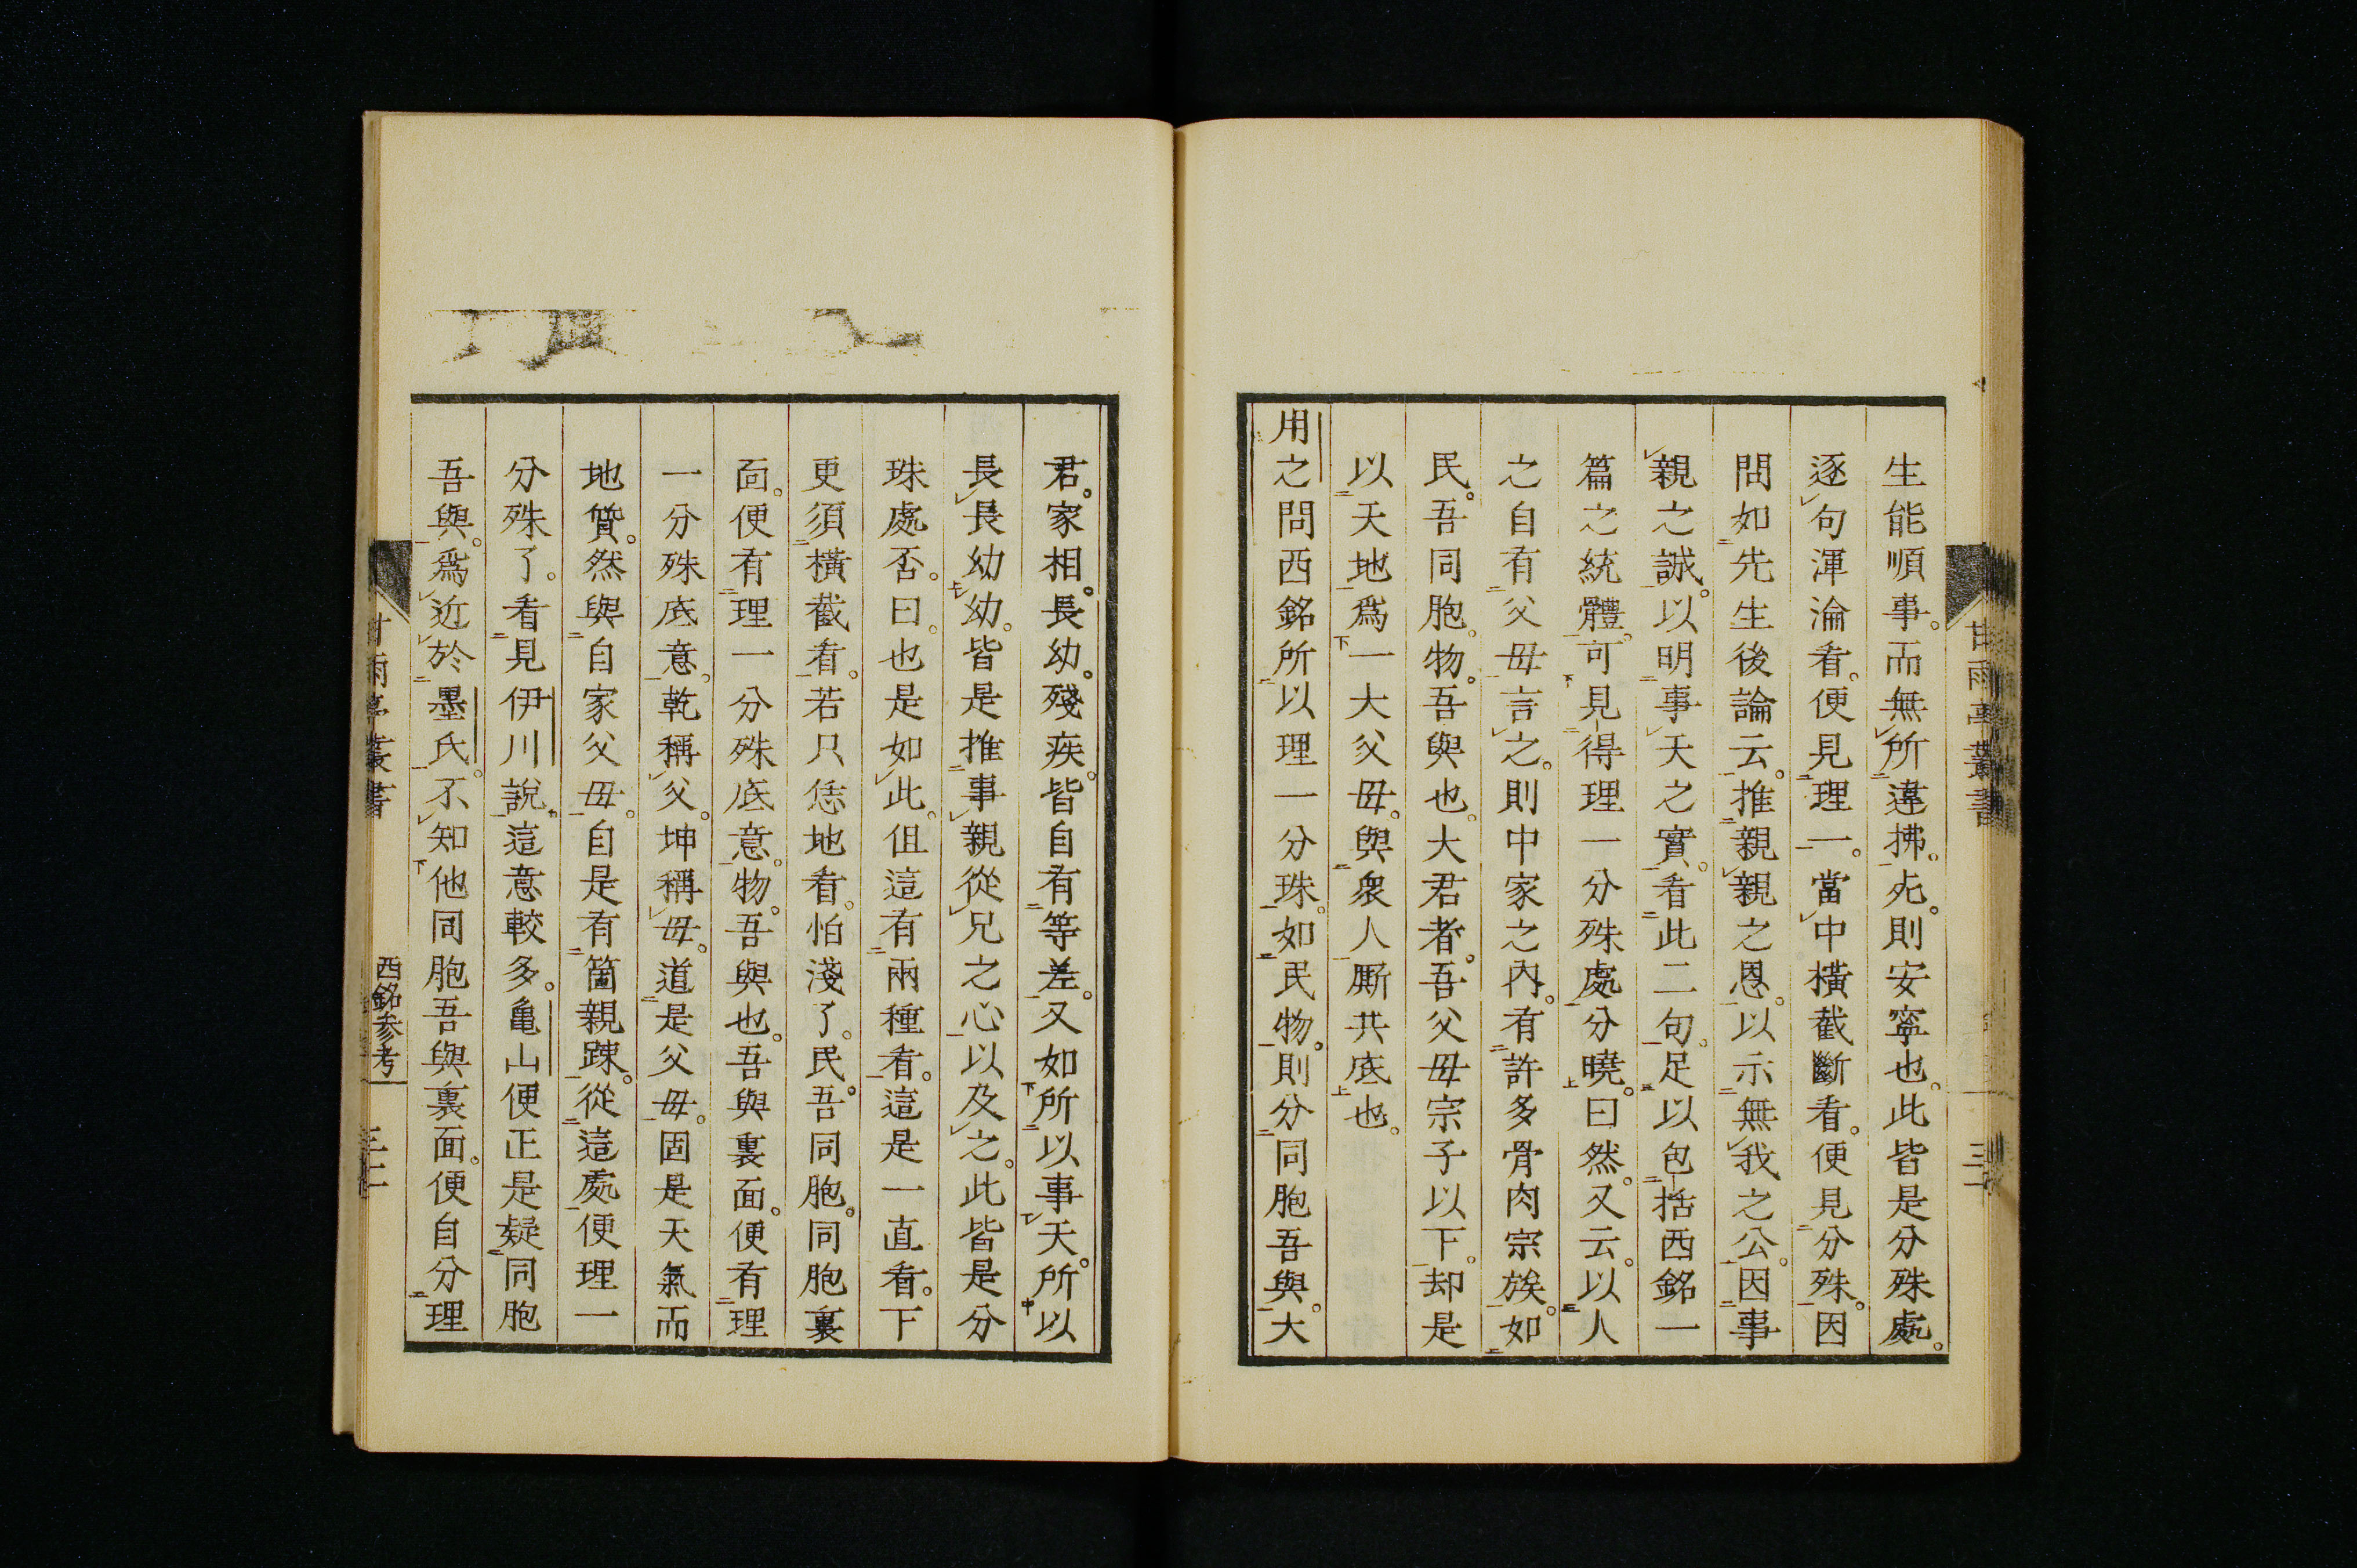 生能順事。而無所違拂。死。則安寧也。此皆是分殊處。
逐句渾淪看。便見理一。當中橫截斷看。便見分殊。因
問如先生後論云。推親親之恩。以示無我之公。因事
親之誠。以明事天之實。看此二句。足以包括西銘一
篇之統體。可見得理一分殊處分曉。曰然。又云。以人
之自有父母言之。則中家之內。有許多骨肉宗族。如
民。吾同胞。物。吾與也。大君者。吾父母宗子以下。却是
以天地爲一大父母。與衆人厮共底也。
用之問西銘所以理一分珠。如民物。則分同胞吾與。大
君。家相。長幼。殘疾。皆自有等差。又如所以事天。所以
長長幼幼。皆是推事親從兄之心以及之。此皆是分
珠處否。曰。也是如此。但這有兩種看。這是一直看。下
更須橫截看。若只恁地看。怕淺了。民。吾同胞。同胞裏
面。便有理一分殊底意。物。吾與也。吾與裏面。便有理
一分殊底意。乾稱父。坤稱母。道是父母。固是天氣而
地質。然與自家父母。自是有箇親踈。從這處便理一
分殊了。看見伊川說。這意較多。亀山便正是疑同胞
吾與。爲近於墨氏。不知他同胞吾與裏面。便自分理
甘雨亭叢書
西銘参考